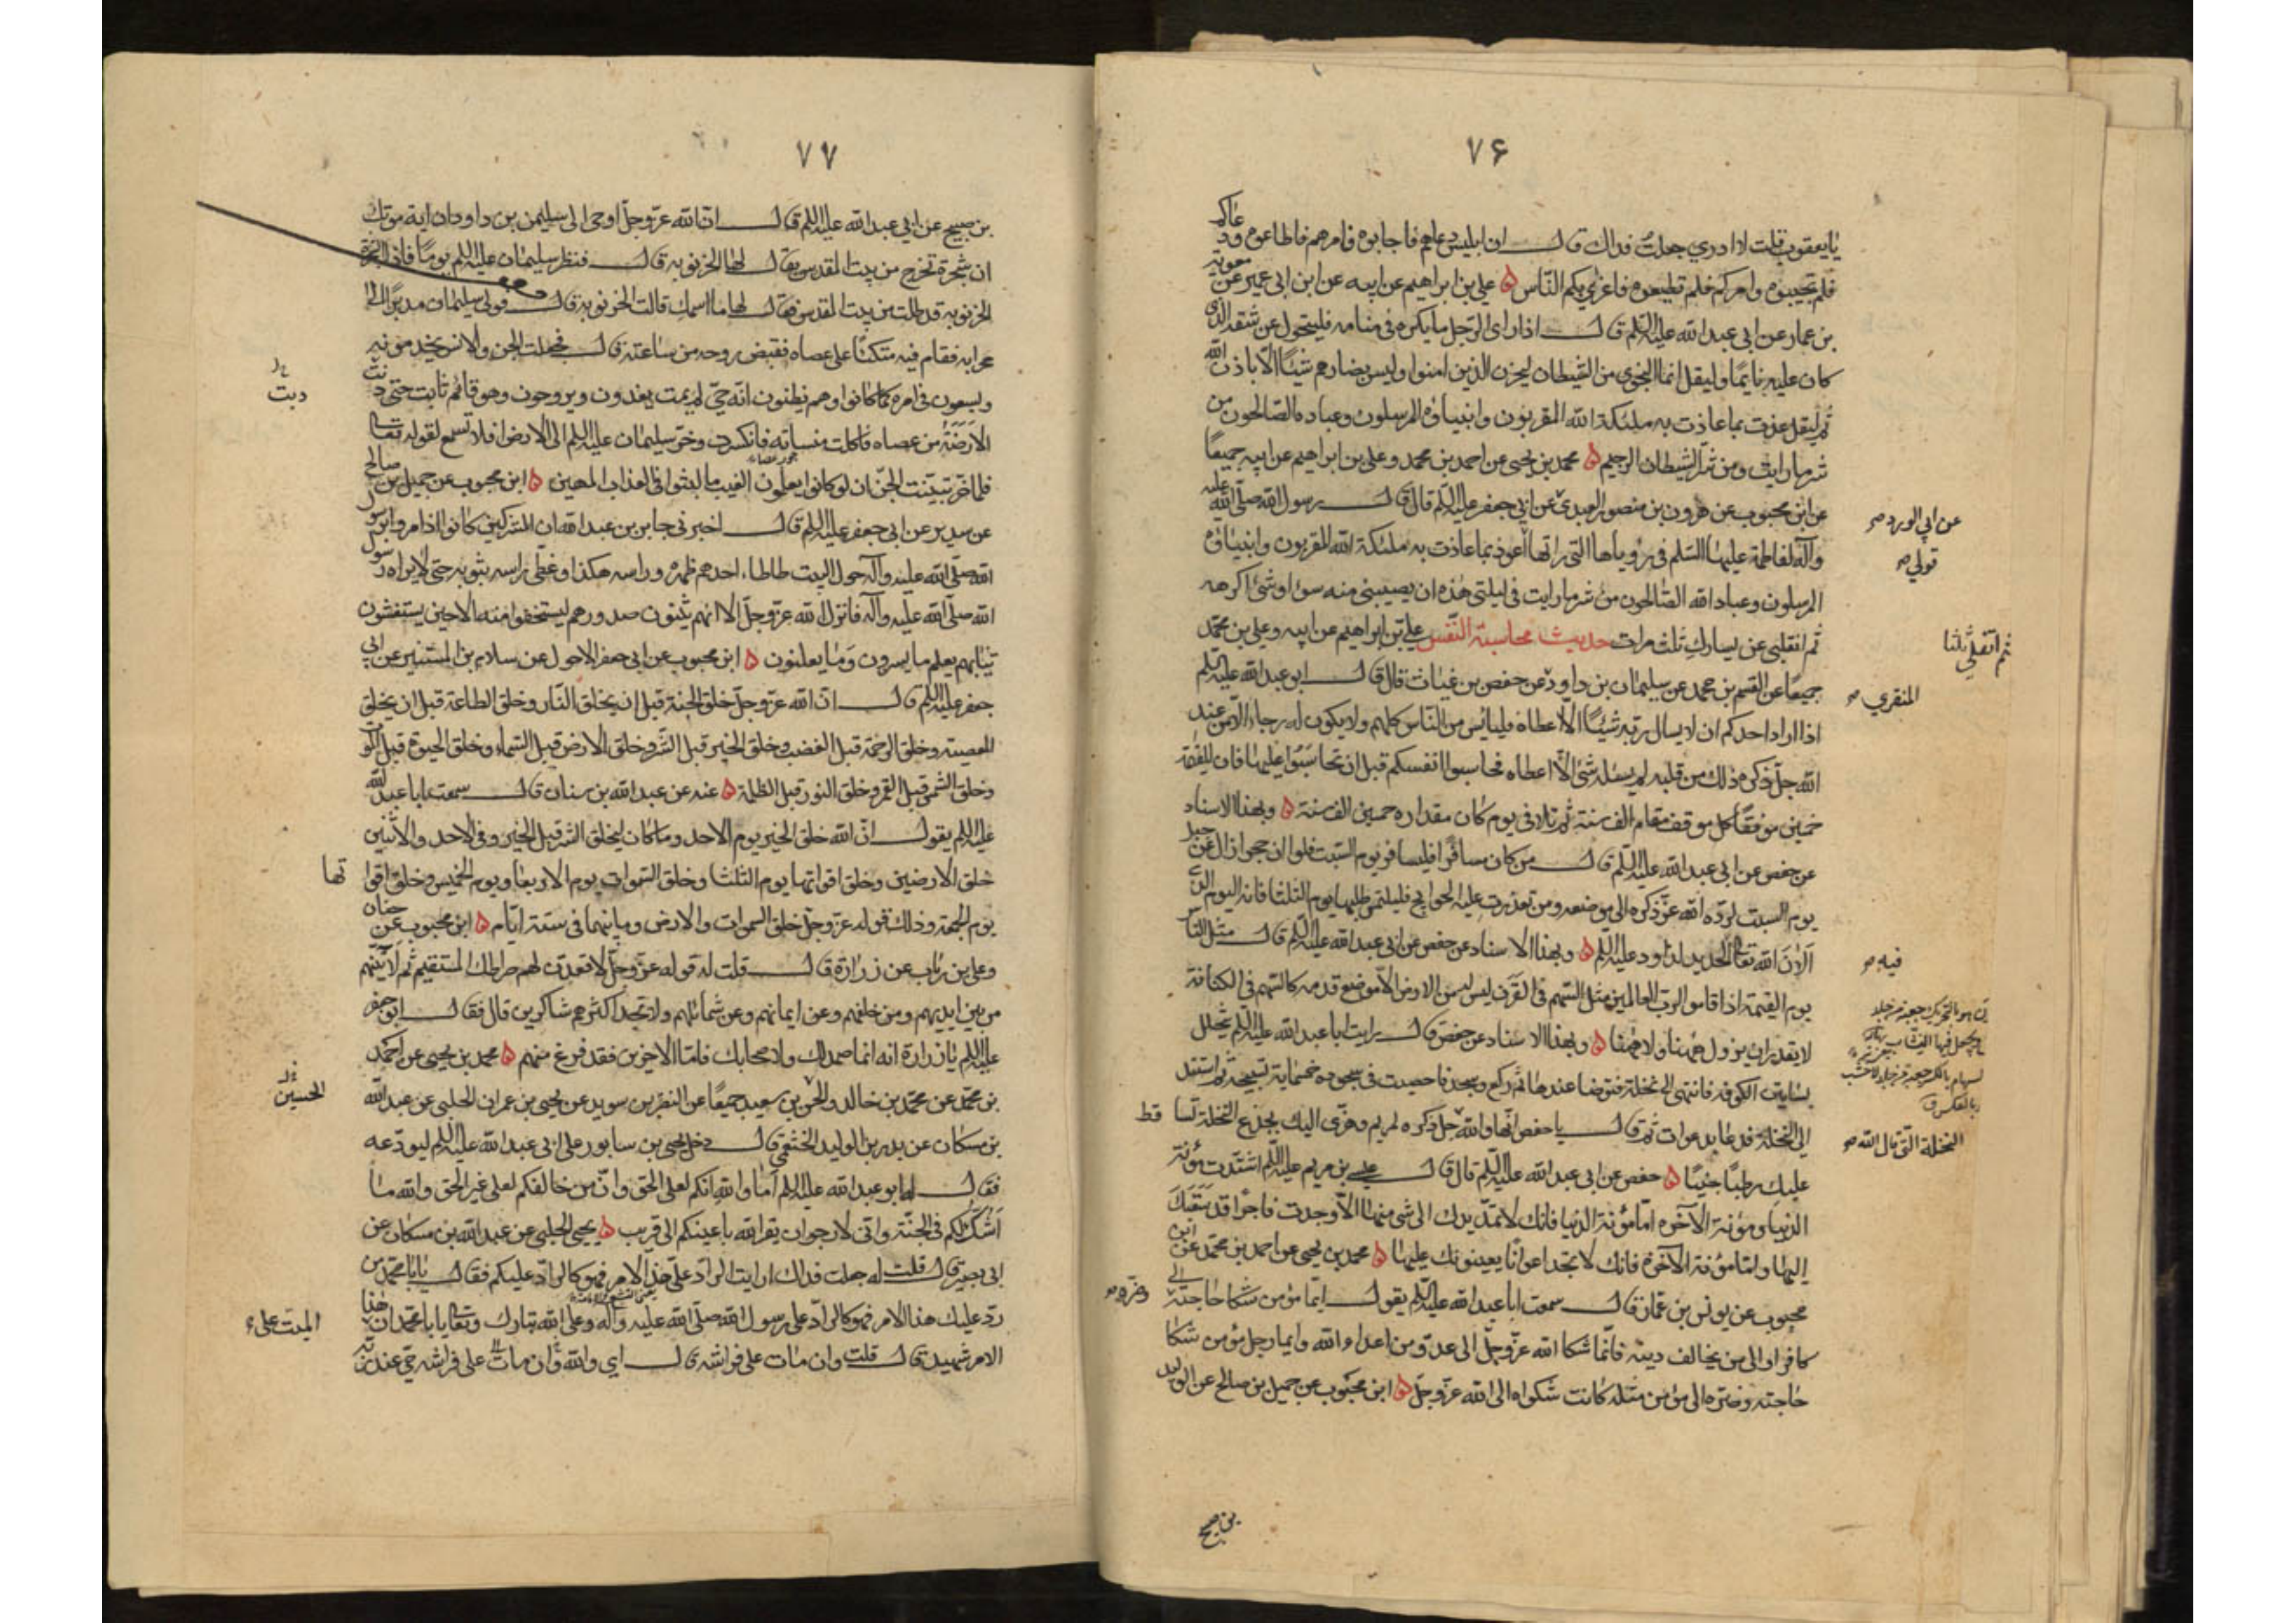 ٧۶
يا يعقوب قلت لا ادري جعلت فداك قال ان ابليس دعاهم فاجابوه وامرهم فاطاعوه ودعاكم
فلم تجيبوه وامركم فلم تطيعوه فاغرى بكم الناس ه علي بن ابراهيم عن ابيه عن ابن ابي عمير عن معوية
بن عمار عن ابي عبد الله عليه السلم قال اذا راى الرجل ما يكره في منامه فليتحول عن شقه الذي
كان عليه نائما وليقل انما النجوى من الشيطان ليحزن الذين امنوا وليس بضارهم شيئا الا باذن الله
ثم ليقل عذت بما عاذت به ملئكة الله المقربون وانبياؤه المرسلون وعباده الصالحون من
شر ما رايت ومن شر الشيطان الرجيم ه محمد بن يحيى عن احمد بن محمد وعلي بن ابراهيم عن ابيه جميعا
عن ابن محبوب عن هرون بن منصور العبدي عن ابي جعفر عليه السلم قال قال رسول الله صلى الله عليه
عن ابي الورد صح
وآله لفاطمة عليها السلم في رؤياها التي راتها اعوذ بما عاذت به ملئكة الله المقربون وانبياؤه
قولي صح
المرسلون وعباد الله الصالحون من شر ما رايت في ليلتي هذه ان يصيبني منه سوء او شئ اكرهه
ثم انقلبي عن يسارك ثلث مرات حديث محاسبة النفس علي بن ابراهيم عن ابيه وعلي بن محمد
ثم اتفلي ثلثا
جميعا عن القسم بن محمد عن سليمان بن داود عن حفص بن غياث قال قال ابو عبد الله عليه السلم
المنقري صح
اذا اراد احدكم ان لا يسال ربه شيئا الا اعطاه فليائس من الناس كلهم ولا يكون له رجاء الا من عند
الله جل ذكره ذلك من قلبه لم يسئله شئ الا اعطاه فحاسبوا انفسكم قبل ان تحاسبوا عليها فان للقيمة
خمسين موقفا كل موقف مقام الف سنة ثم تلا في يوم كان مقداره خمسين الف سنة ه وبهذا الاسناد
عن حفص عن ابي عبد الله عليه السلم قال من كان مسافرا فليسافر يوم السبت فلو ان حجرا زال عن جبل
يوم السبت لرده الله عز ذكره الى موضعه ومن تعذرت عليه الحوايج فليلتمس طلبها يوم الثلثا فانه اليوم الذي
آلان الله تعالى الحديد لداود عليه السلم ه وبهذا الاسناد عن حفص عن ابي عبد الله عليه السلم قال مثل الناس
فيه صح
يوم القيمة اذا قاموا لرب العالمين مثل السهم في القرن ليس له من الارض الا موضع قدمه كالسهم في الكنانة
لا يقدر ان يزول ههنا ولا ههنا ه وبهذا الاسناد عن حفص قال رايت ابا عبد الله عليه السلم يتخلل
بساتين الكوفة فانتهى الى نخلة فتوضا عندها ثم ركع وسجد فاحصيت في سجوده خمسماية تسبيحة ثم استند
الى النخلة فدعا بدعوات ثم قال يا حفص انها والله جل ذكره لمريم وهزي اليك بجذع النخلة تسا قط
النخلة التي قال الله صح
عليك رطبا جنيا ه حفص عن ابي عبد الله عليه السلم قال قال عيسى بن مريم عليه السلم اشتدت مؤنة
الدنيا ومؤنة الآخرة اما مؤنة الدنيا فانك لا تمد يدك الى شئ منها الا وجدت فاجرا قد سبقك
اليها واما مؤنة الآخرة فانك لا تجد اعوانا يعينونك عليها ه محمد بن يحيى عن احمد بن محمد عن ابن
محبوب عن يونس بن عمار قال سمعت ابا عبد الله عليه السلم يقول ايما مؤمن شكا حاجته الى
وضره صح
كافر او الى من يخالف دينه فانما شكا الله عز وجل الى عدو من اعداء الله وايما رجل مؤمن شكا
حاجته وضره الى مؤمن مثله كانت شكواه الى الله عز وجل ه ابن محبوب عن جميل بن صالح عن الوليد
بن صبيح
٧٧
بن صبيح عن ابي عبد الله عليه السلم قال ان الله عز وجل اوحى الى سليمن بن داود ان اية موتك
ان شجرة تخرج من بيت المقدس يقال لها الخرنوبة قال فنظر سليمان عليه السلم يوما فاذا الشجرة
الخرنوبة قد طلعت من بيت المقدس فقال لها ما اسمك قالت الخرنوبة قال فولى سليمان مدبرا الى
محرابه فقام فيه متكئا على عصاه فقبض روحه من ساعته قال فجعلت الجن والانس يخدمونه
ويسعون في امره كما كانوا وهم يظنون انه حي لم يمت يغدون ويروحون وهو قائم ثابت حتى دنت
دبت
الارضة من عصاه فاكلت منساته فانكسرت وخر سليمان عليه السلم الى الارض افلا تسمع لقوله تعالى
فلما خر تبينت الجن ان لو كانوا يعلمون الغيب ما لبثوا في العذاب المهين ه ابن محبوب عن جميل بن صالح
عن سدير عن ابي جعفر عليه السلم قال اخبرني جابر بن عبد الله ان المشركين كانوا اذا مروا برسول
الله صلى الله عليه وآله حول البيت طاطاء احدهم ظهره وراسه هكذا وغطى راسه بثوبه حتى لا يراه رسول
الله صلى الله عليه وآله فانزل الله عز وجل الا انهم يثنون صدورهم ليستخفوا منه الا حين يستغشون
ثيابهم يعلم ما يسرون وما يعلنون ه ابن محبوب عن ابي جعفر الاحول عن سلام بن المستنير عن ابي
جعفر عليه السلم قال ان الله عز وجل خلق الجنة قبل ان يخلق النار وخلق الطاعة قبل ان يخلق
المعصية وخلق الرحمة قبل الغضب وخلق الخير قبل الشر وخلق الارض قبل السماء وخلق الحيوة قبل الموت
وخلق الشمس قبل القمر وخلق النور قبل الظلمة ه عنه عن عبد الله بن سنان قال سمعت ابا عبد الله
عليه السلم يقول ان الله خلق الخير يوم الاحد وما كان ليخلق الشر قبل الخير وفي الاحد والاثنين
خلق الارضين وخلق اقواتها يوم الثلثا وخلق السموات يوم الاربعا ويوم الخميس وخلق اقوا تها
يوم الجمعة وذلك قوله عز وجل خلق السموات والارض وما بينهما في ستة ايام ه ابن محبوب عن حنان
وعلي بن رئاب عن زرارة قال قلت له قوله عز وجل لاقعدن لهم صراطك المستقيم ثم لآتينهم
من بين ايديهم ومن خلفهم وعن ايمانهم وعن شمائلهم ولا تجد اكثرهم شاكرين قال فقال ابو جعفر
عليه السلم يا زرارة انه انما صمد لك ولاصحابك فاما الآخرين فقد فرغ منهم ه محمد بن يحيى عن احمد
بن محمد عن محمد بن خالد والحسن بن سعيد جميعا عن النضر بن سويد عن يحيى بن عمران الحلبي عن عبد الله
الحسين
بن مسكان عن بدر بن الوليد الخثعمي قال دخل يحيى بن سابور على ابي عبد الله عليه السلم ليودعه
فقال له ابو عبد الله عليه السلم اما والله انكم لعلى الحق وان من خالفكم لعلى غير الحق والله ما
اشك لكم في الجنة واني لارجو ان يقر الله باعينكم الى قريب ه يحيى الحلبي عن عبد الله بن مسكان عن
ابي بصير قال قلت له جعلت فداك ارايت الراد علي هذا الامر فهو كالراد عليكم فقال يا با محمد من
رد عليك هذا الامر فهو كالراد على رسول الله صلى الله عليه وآله وعلى الله تبارك وتعالى يا با محمد ان هذا
الميت على
الامر شهيد قال قلت وان مات على فراشه قال اي والله وان مات على فراشه حي عند ربه